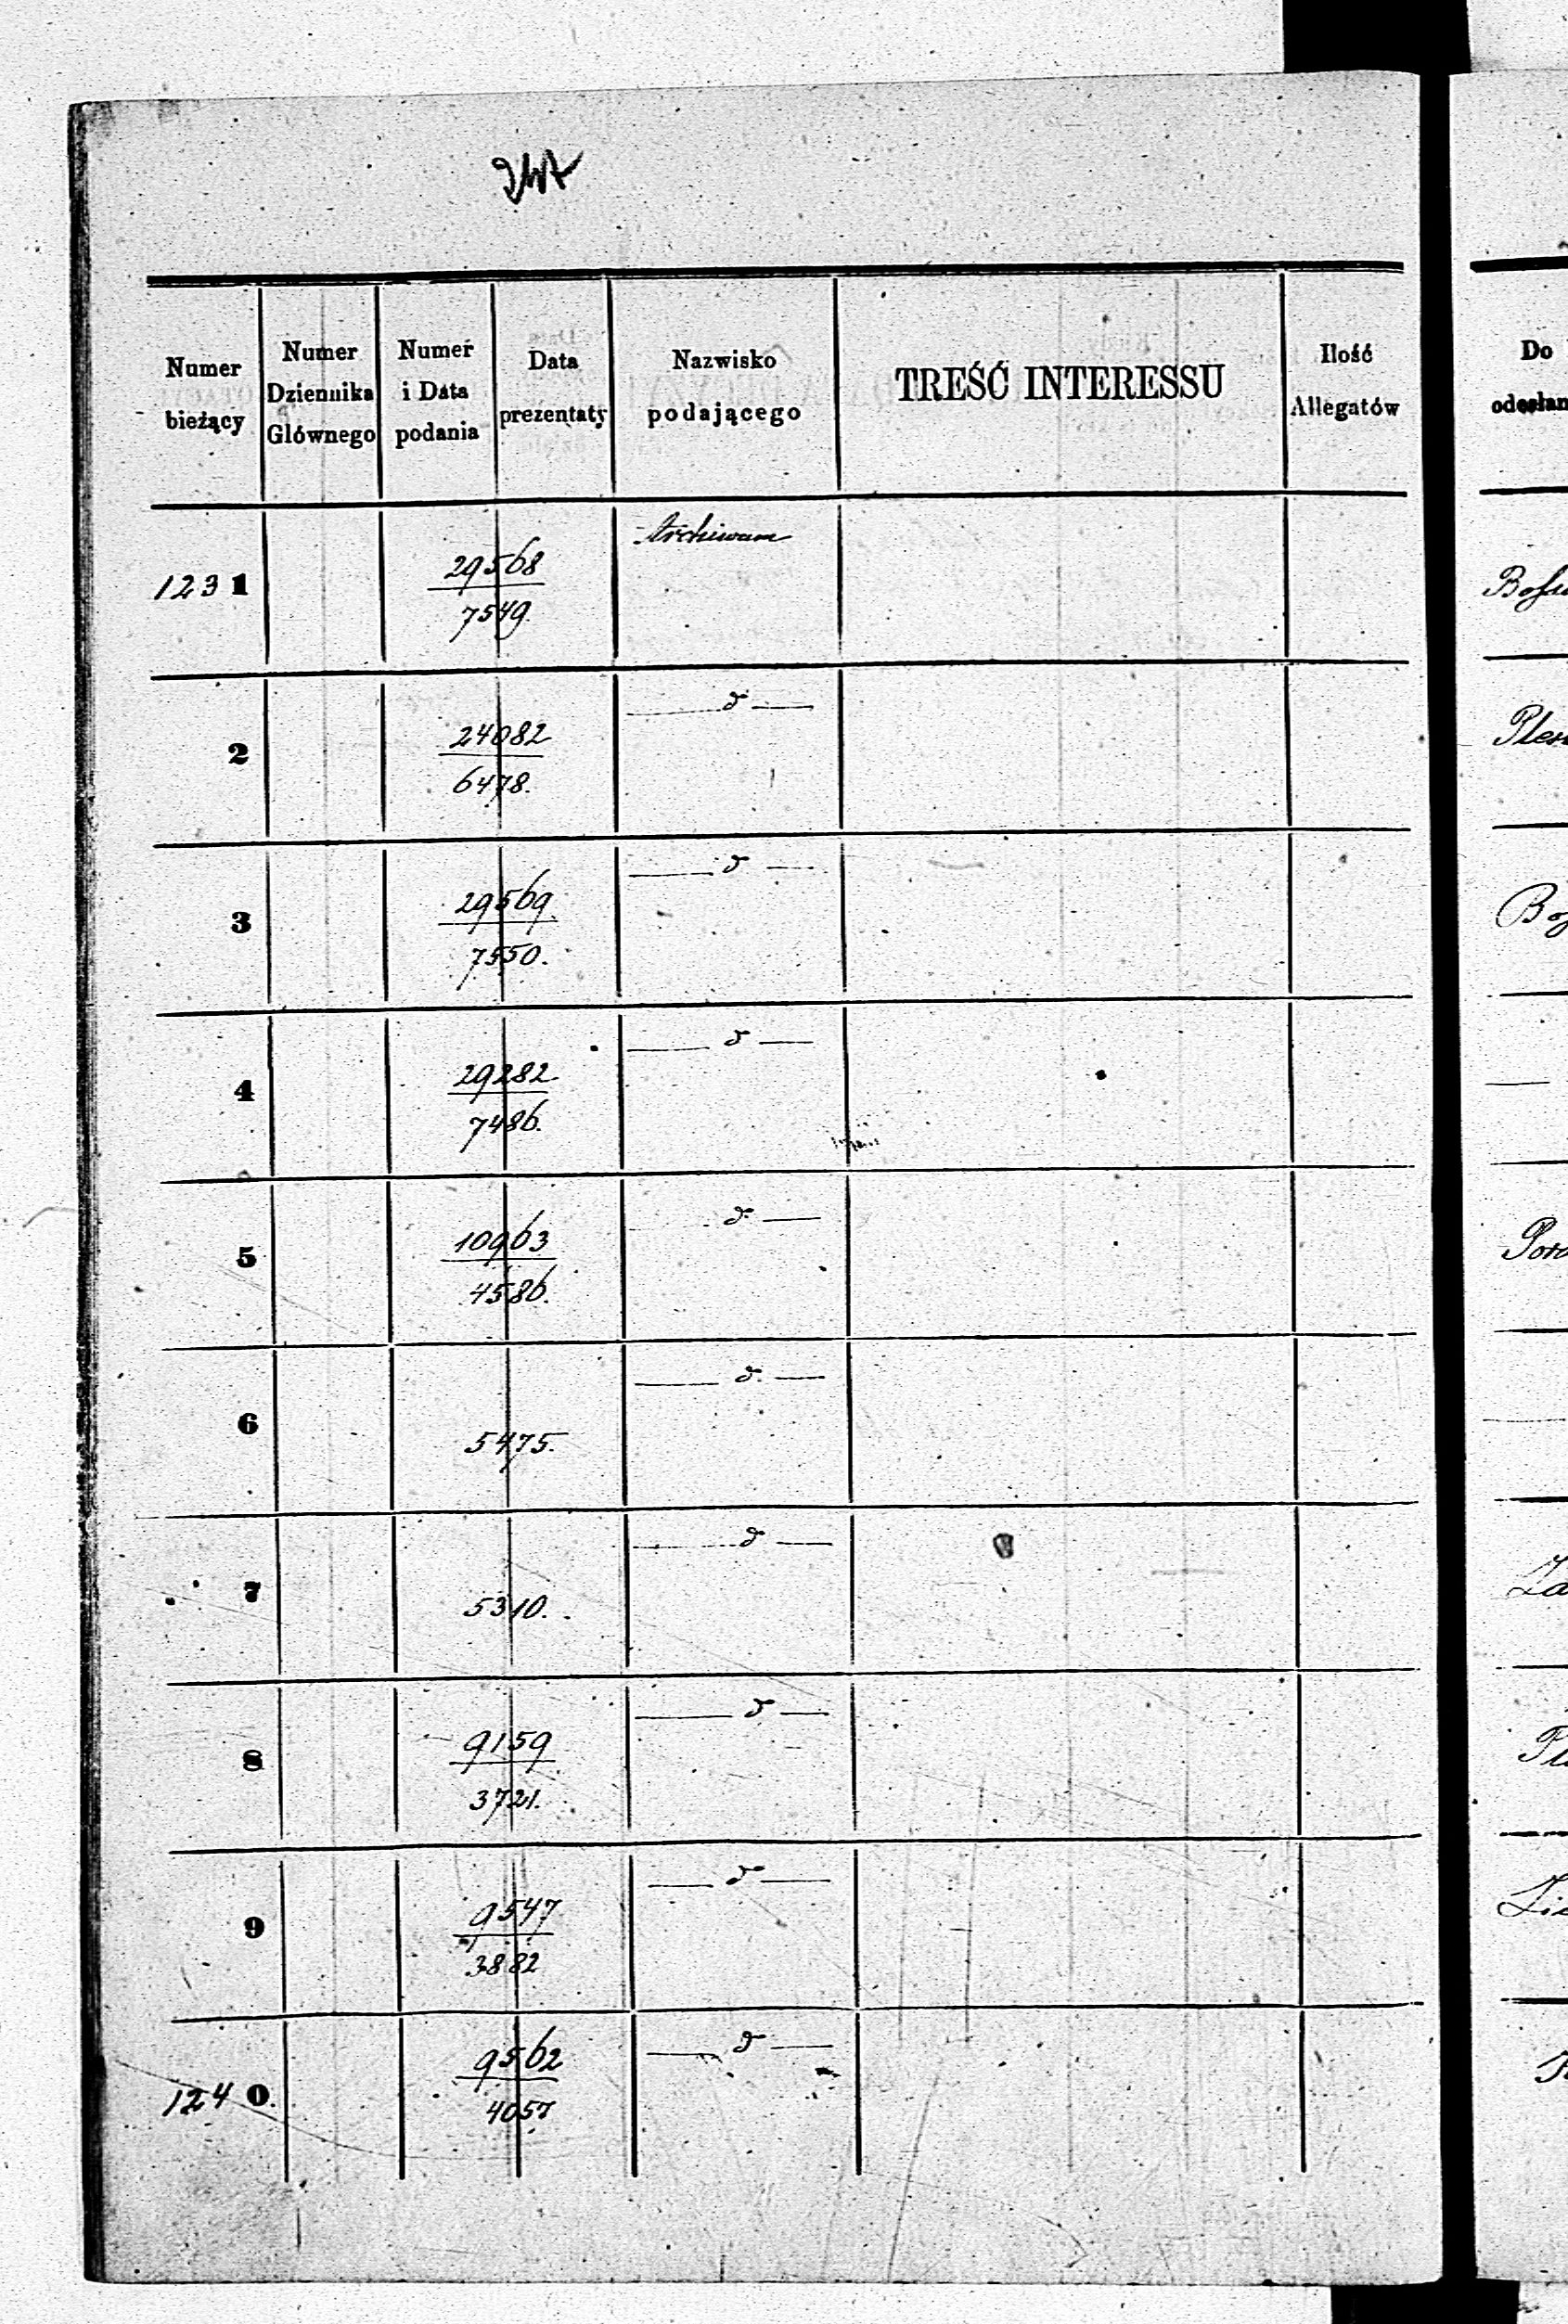 Numer bieżący
Numer Dziennika Głównego
Numer i Data podania
Data prezentaty
Nazwisko podającego
TREŚĆ INTERESSU
Ilość Allegatów
Do
1231
29568
7549.
Archiwum
2
24082
6478.
d
3
29569
7550.
d
4
29282
7486.
d
5
10963
4586.
d
6
5475.
d
7
5310.
d
8
9159
3721.
d
9
9547
3882
d
1240.
9562
4057
d